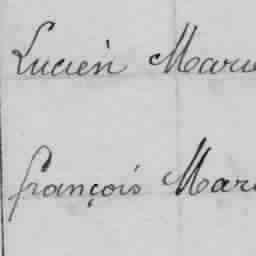 Lucien Marie
François Mari